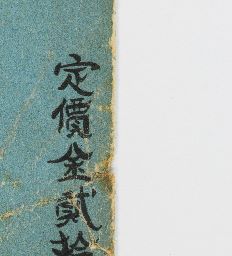 定價金貳拾